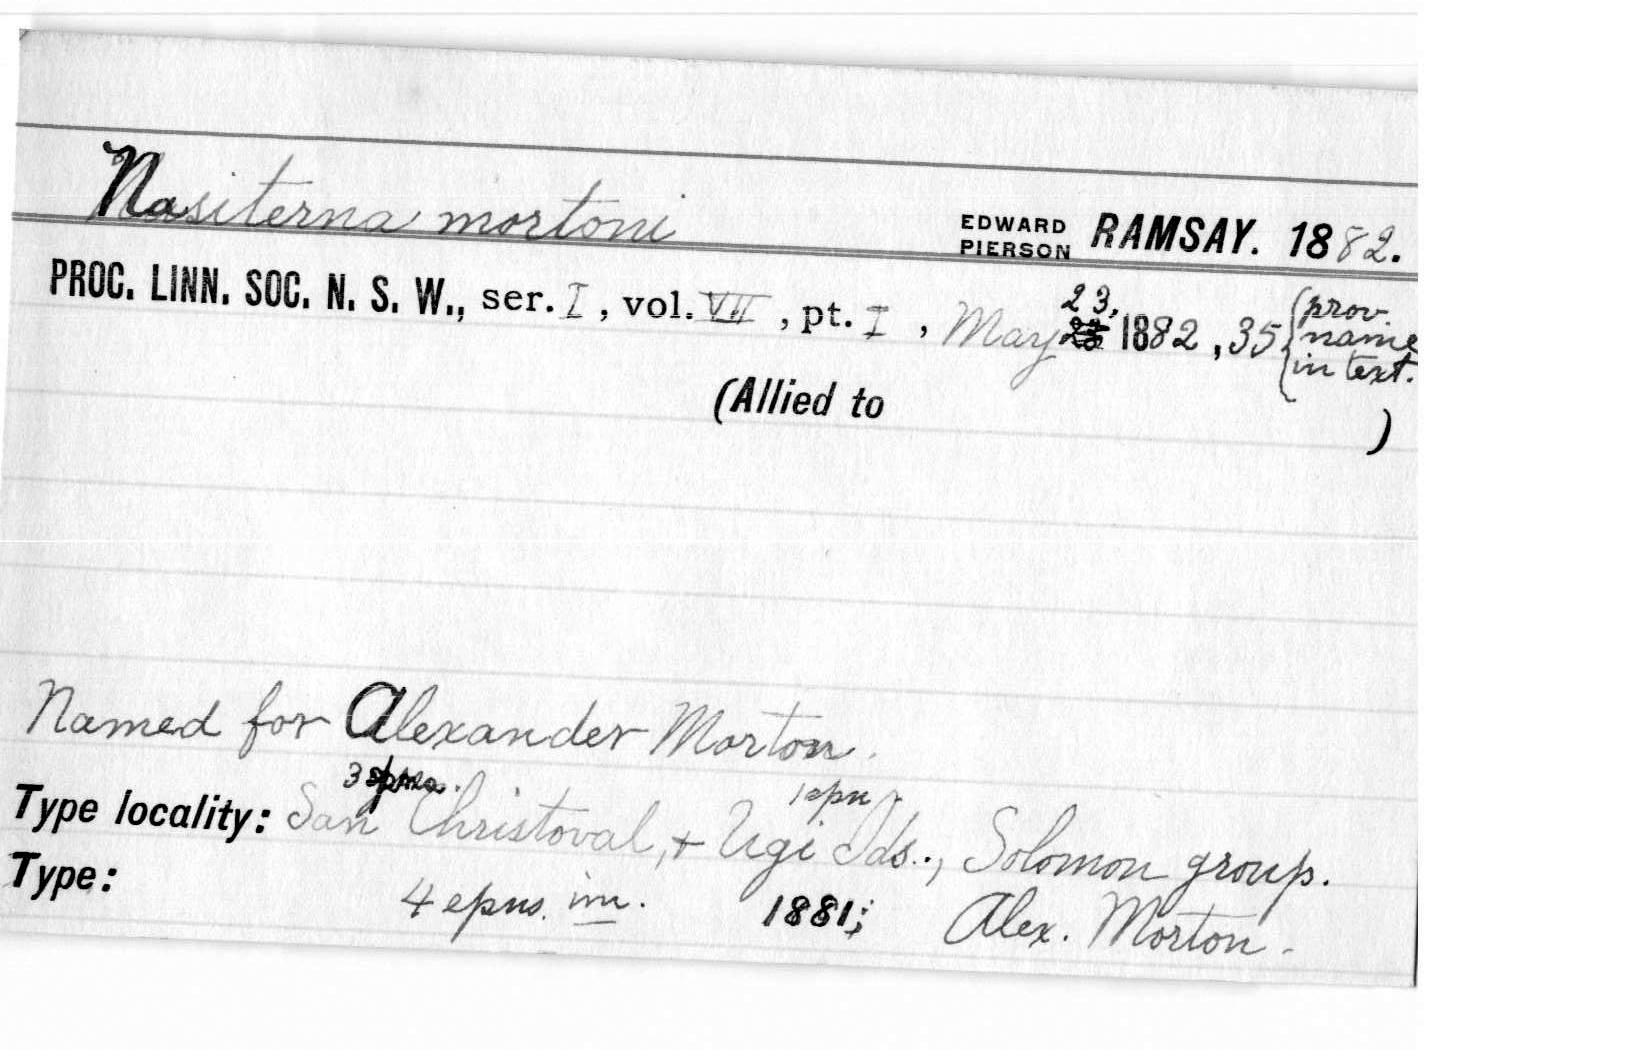 Nasiterna mortoni EDWARD PIERSON RAMSAY. 1882.
PROC. LINN. SOC. N. S. W., ser. I, vol. VII, pt. I, May 23, 1882, 35 {prov. name in text.
(Allied to )
Named for Alexander Morton.
3 spns. 1 spn
Type locality: San Christoval, + Ugi Ids., Solomon group.
Type: 4 spns. im. 1881; Alex. Morton.